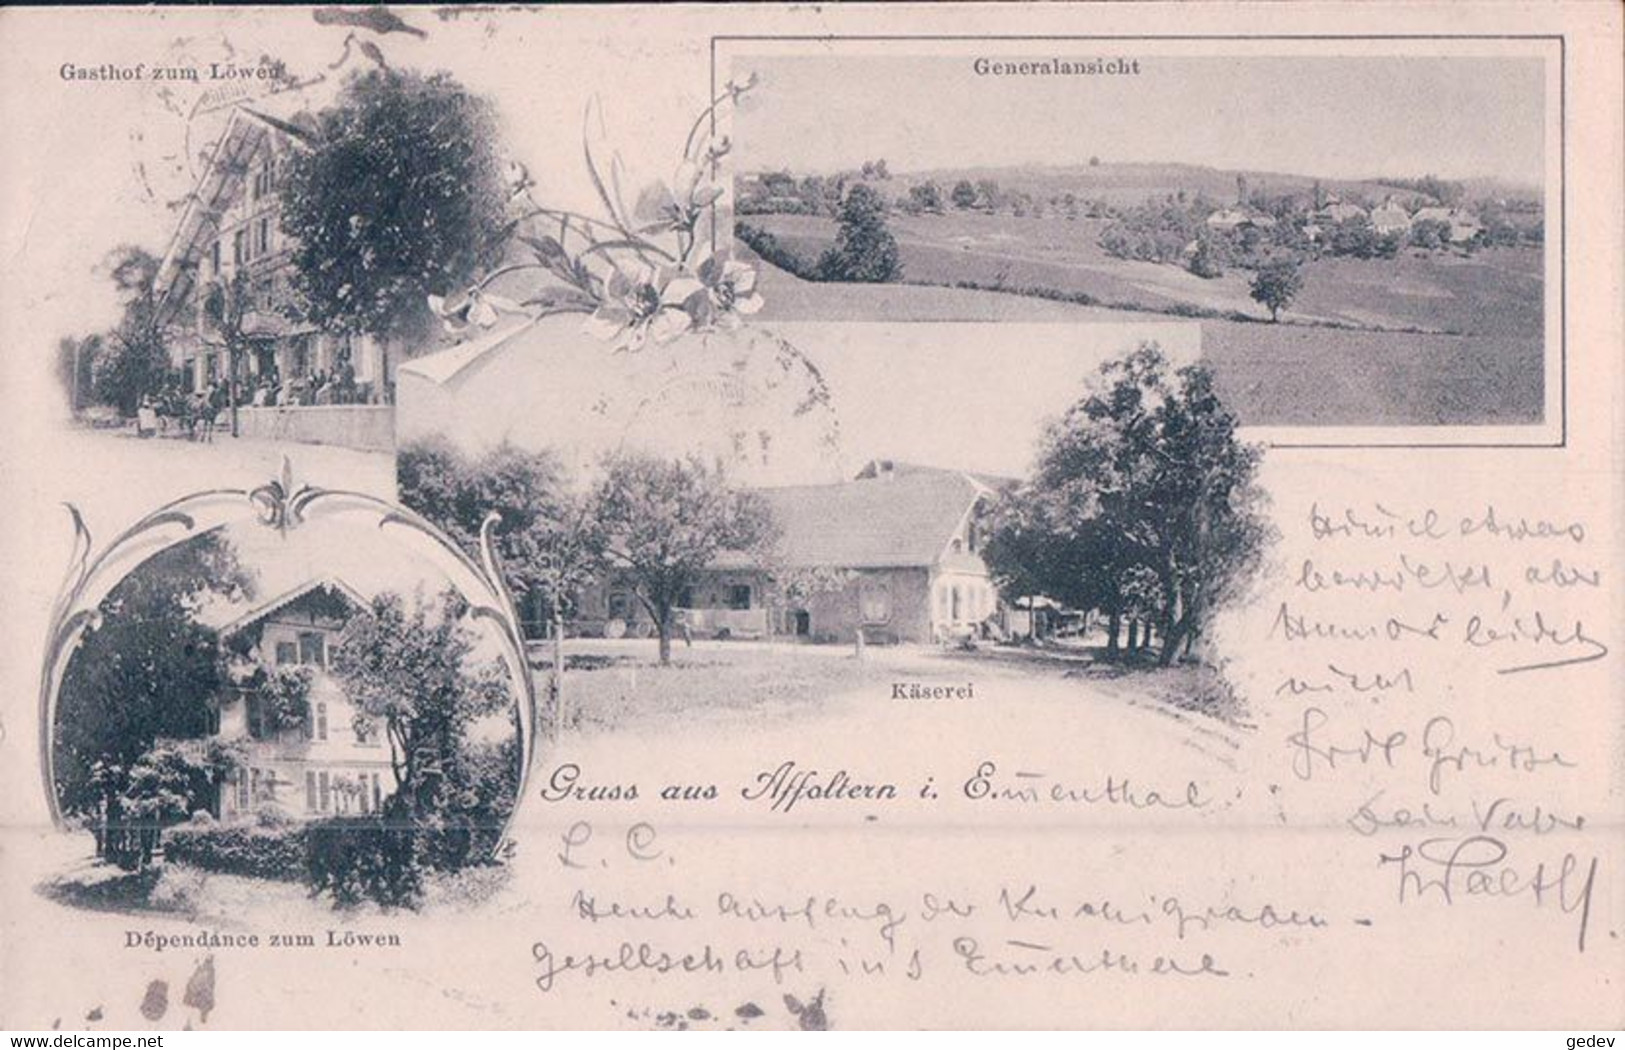 Gasthof zum Löwen
Generalansicht
Käserei
Dépendance zum Löwen
Gruss aus Affoltern i. E.menthal.
L. C.
Heute Ausflug der
gesellschaft in's Emmenthal.
etwas
, aber
Humor leidet
nicht.
Grüsse
Dein Vater
delcampe.net
gedev